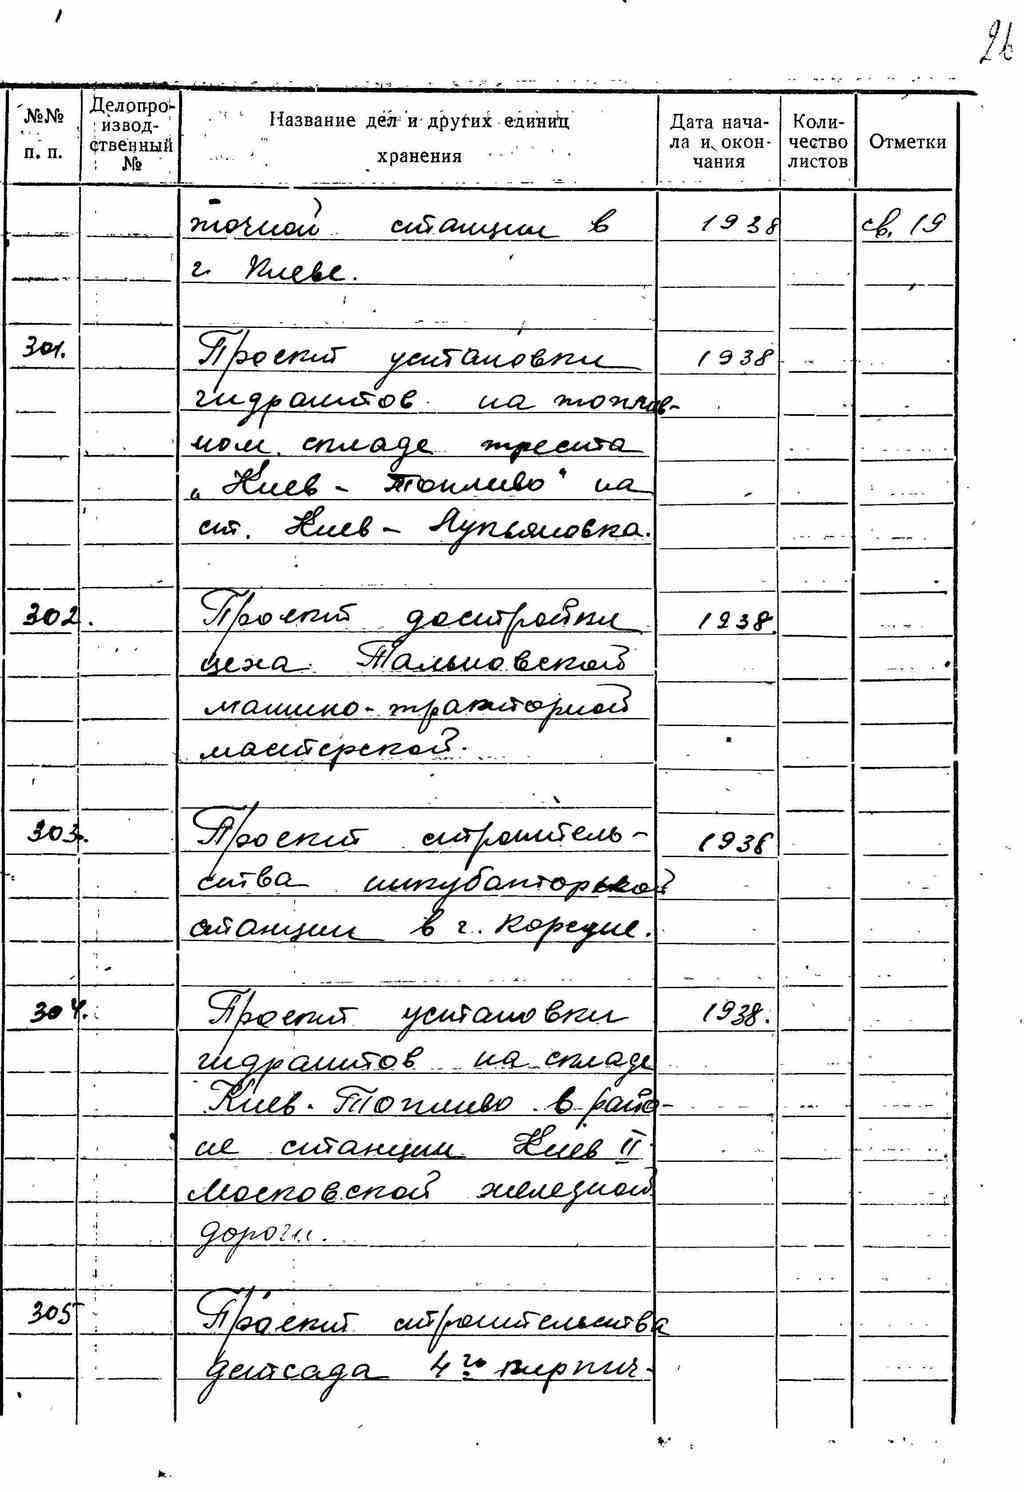 26
№№ п. п.
Делопро-
извод-
ственный
№
Название дел и других единиц
хранения
Дата нача-
ла и окон-
чания
Коли-
чество
листов
Отметки
точной станции в 1938 св. 19
г. Киеве.
301. Проект установки 1938
гидрантов на топлив-
ном складе треста
„Киев - Топливо" на
ст. Киев - Лукьяновка.
302. Проект достройки 1938.
цеха Тальновской
машино-тракторной
мастерской.
303. Проект строитель- 1938
ства инкубаторской
станции в г. Корсуне.
304. Проект установки 1938.
гидрантов на складе
Киев - Топливо в райо-
не станции Киев II
Московской железной
дороги.
305 Проект строительства
детсада 4го кирпич-